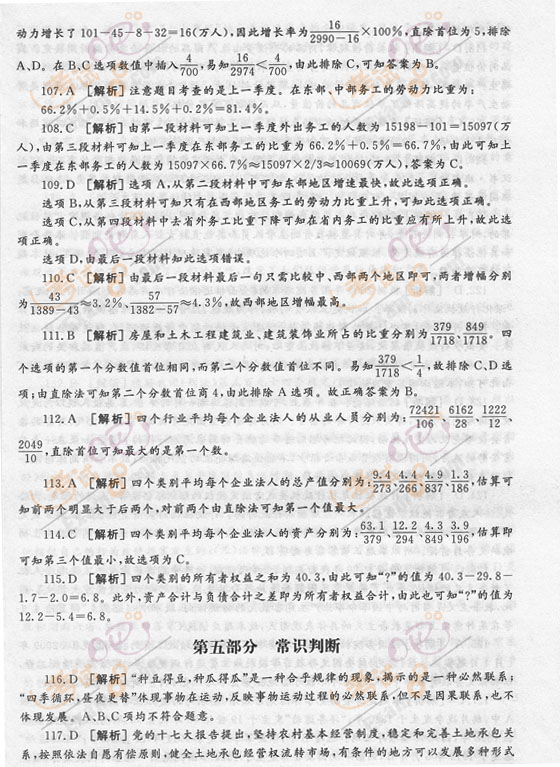 动力增长了 101-45-8-32=16(万人),因此增长率为16/(2990-16)×100%,直除首位为5,排除
A、D。在B、C选项数值中插入4/700,易知16/2974<4/700,由此排除C,可知答案为B。
107. A [解析] 注意题目考查的是上一季度。在东部、中部务工的劳动力比重为:
66.2%+0.5%+14.5%+0.2%=81.4%。
108. C [解析] 由第一段材料可知上一季度外出务工的人数为 15198-101=15097(万
人),由第三段材料可知上一季度在东部务工的比重为 66.2%+0.5%=66.7%,由此可知上
一季度在东部务工的人数为 15097×66.7%≈15097×2/3≈10069(万人),答案为C。
109. D [解析] 选项A,从第二段材料中可知东部地区增速最快,故此选项正确。
选项B,从第三段材料可知只有在西部地区务工的劳动力比重上升,可知此选项正确。
选项C,从第四段材料中去省外务工比重下降可知在省内务工的比重应有所上升,故此选
项正确。
选项D,由最后一段材料知此选项错误。
110. C [解析] 由最后一段材料最后一句只需比较中、西部两个地区即可,两者增幅分别
为43/(1389-43)≈3.2%、57/(1382-57)≈4.3%,故西部地区增幅最高。
111. B [解析] 房屋和土木工程建筑业、建筑装饰业所占的比重分别为379/1718、849/1718。四
个选项的第一个分数值首位相同,而第二个分数值首位不同。易知379/1718<1/4,故排除C、D选
项;由直除法可知第二个分数首位商4,由此排除A选项。故正确答案为B。
112. A [解析] 四个行业平均每个企业法人的从业人员分别为:72421/106、6162/28、1222/12、
2049/10,直除首位可知最大的是第一个数。
113. A [解析] 四个类别平均每个企业法人的总产值分别为:9.4/273、4.4/266、4.9/837、1.3/186,估算可
知前两个明显大于后两个,对前两个由直除法可知第一个值最大。
114. C [解析] 四个类别平均每个企业法人的资产分别为:63.1/379、12.2/294、4.3/849、3.9/196,估算即
可知第三个值最小,故选项为C。
115. D [解析] 四个类别的所有者权益之和为 40.3,由此可知“?”的值为 40.3-29.8-
1.7-2.0=6.8。此外,资产合计与负债合计之差即为所有者权益合计,由此也可知“?”的值为
12.2-5.4=6.8。
第五部分 常识判断
116. D [解析] “种豆得豆,种瓜得瓜”是一种合乎规律的现象,揭示的是一种必然联系;
“四季循环,昼夜更替”体现事物在运动,反映事物运动过程的必然联系,但不是因果联系,也不
体现发展。A、B、C项均不符合题意。
117. D [解析] 党的十七大报告提出,坚持农村基本经营制度,稳定和完善土地承包关
系,按照依法自愿有偿原则,健全土地承包经营权流转市场,有条件的地方可以发展多种形式